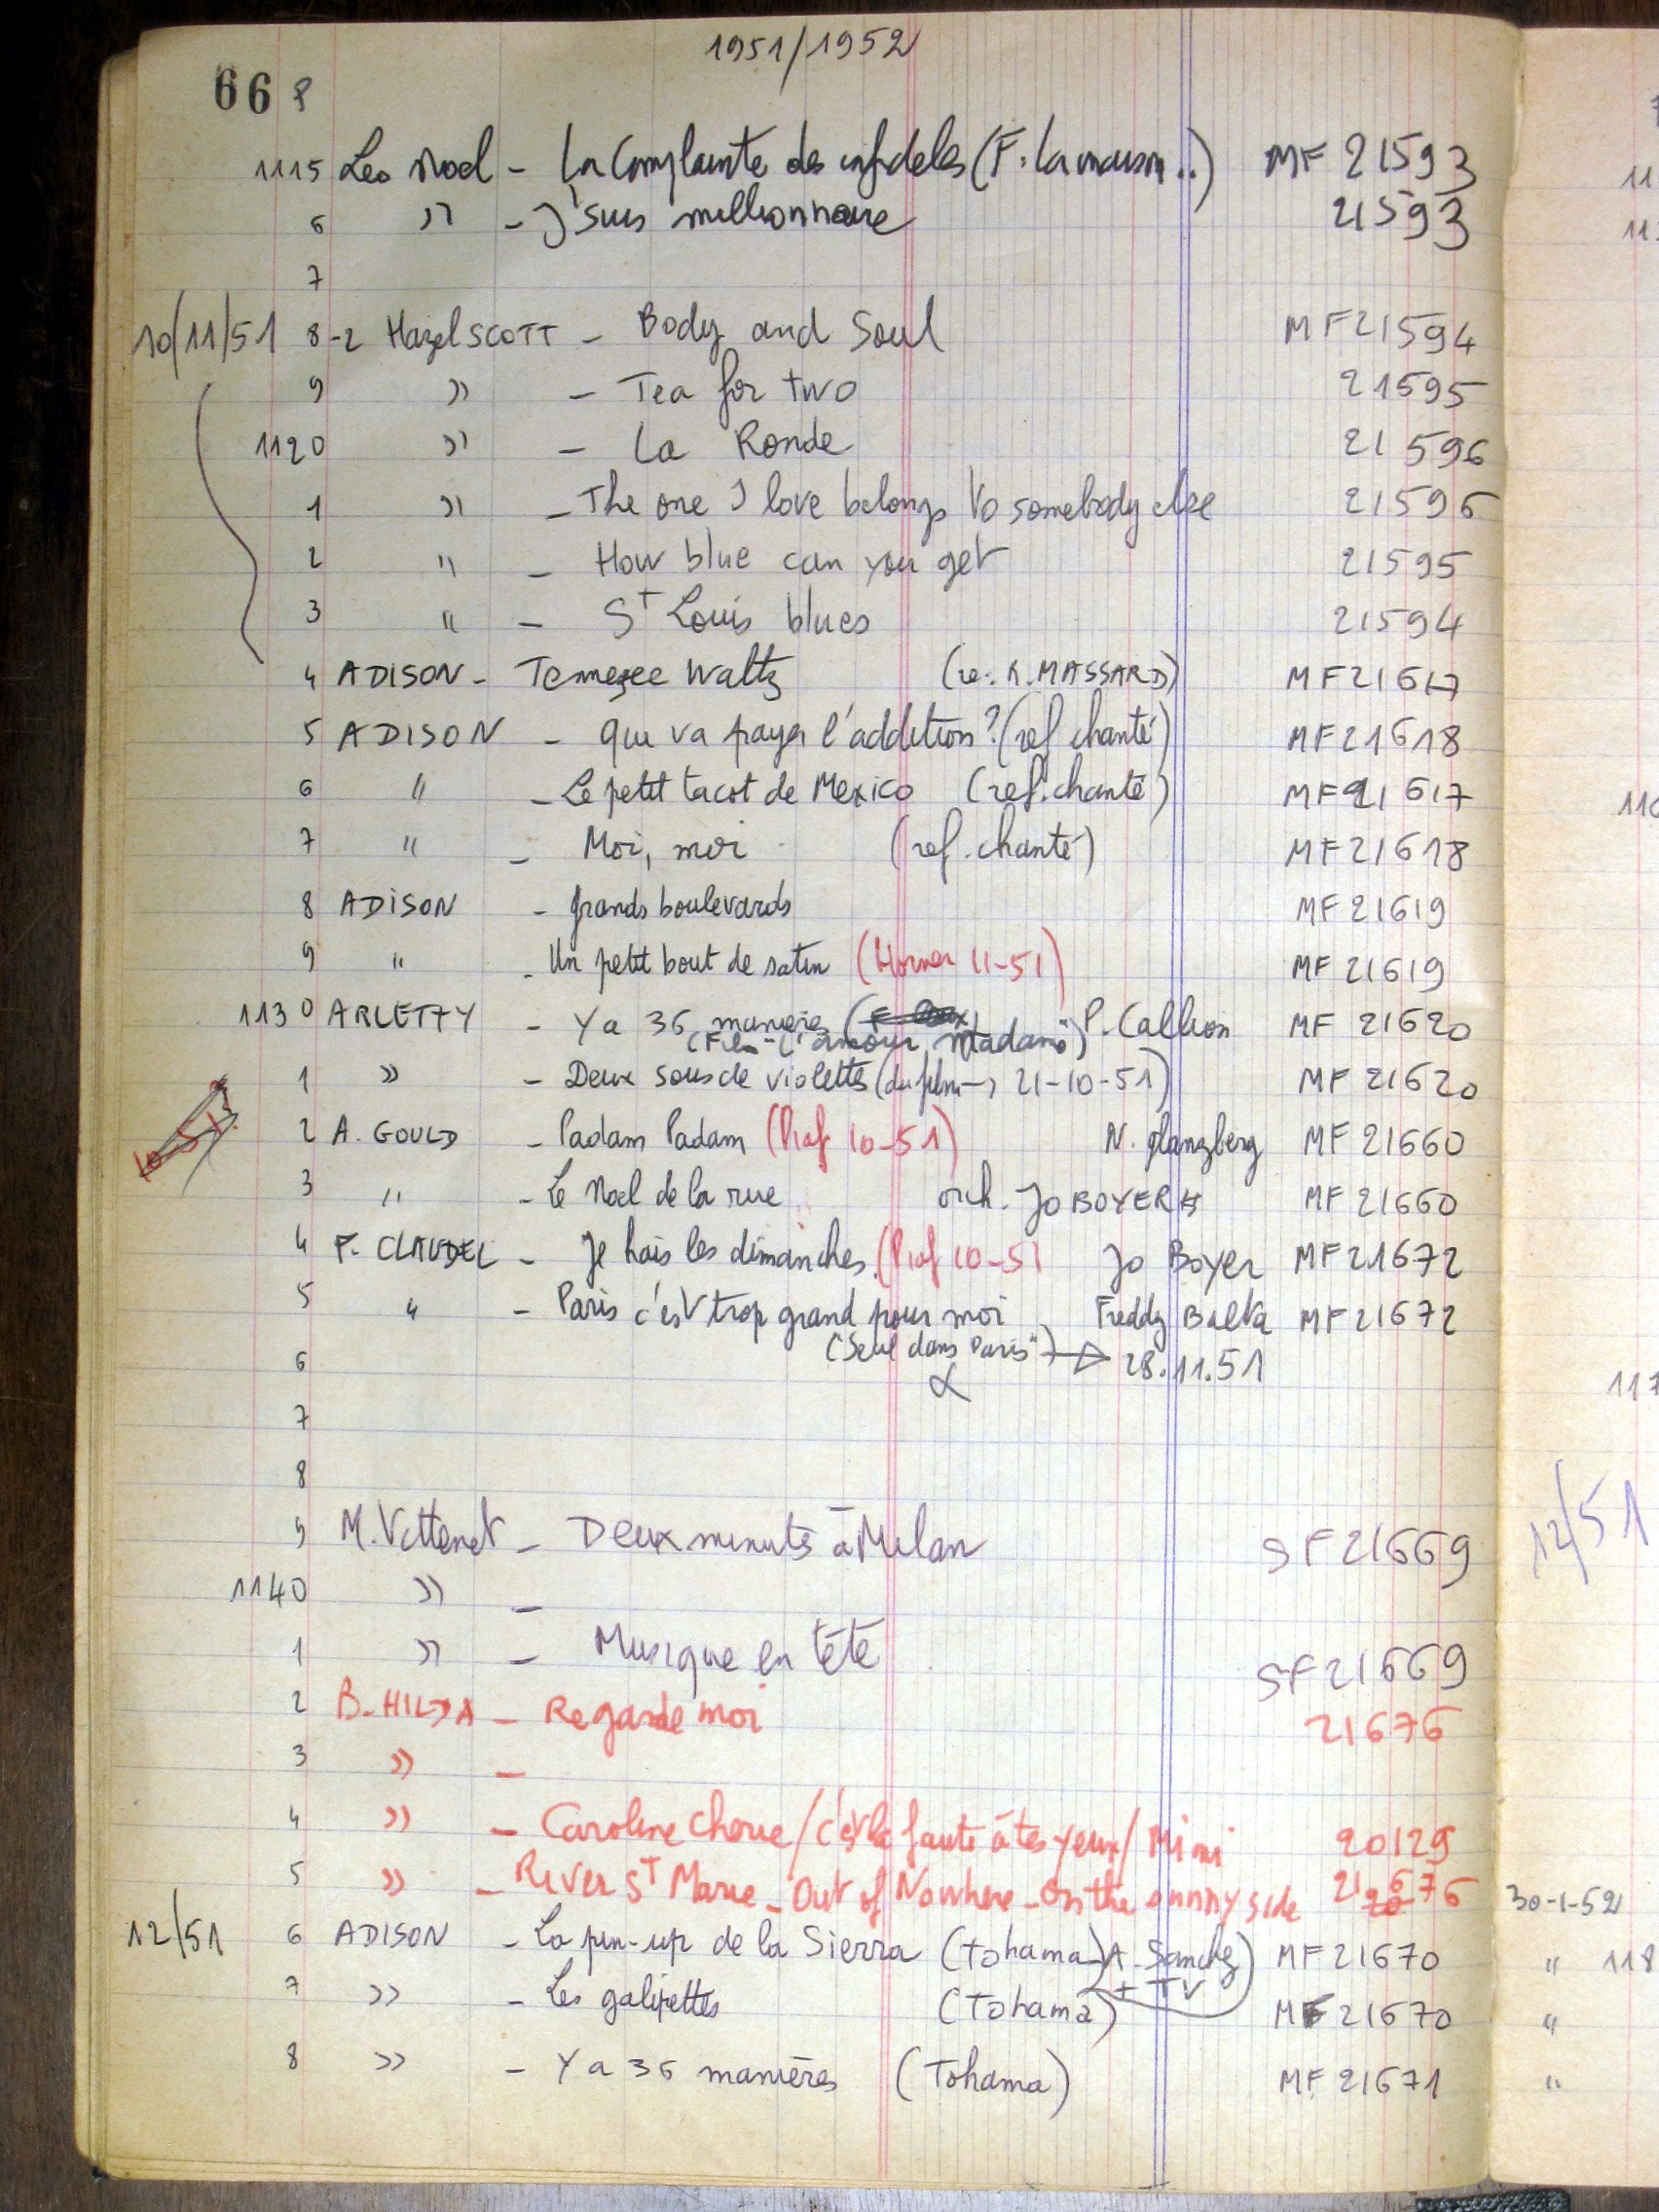 1951/1952
66
1115 Leo Noel - La Complainte des infideles (F: La maison..) MF 21593
6 " - J'suis millionnaire 21593
7
10/11/51 8-2 Hazel SCOTT - Body and Soul MF21594
9 " - Tea for two 21595
1120 " - La Ronde 21596
1 " - The one I love belongs to somebody else 21596
2 " - How blue can you get 21595
3 " - St Louis blues 21594
4 ADISON - Tennessee Waltz (re: R. MASSARD) MF21617
5 ADISON - Qui va payer l'addition? (ref chanté) MF21618
6 " - Le petit tacot de Mexico (ref. chanté) MF21617
7 " - Moi, moi (ref. chanté) MF21618
8 ADISON - Grands boulevards MF 21619
9 " - Un petit bout de satin (Horner 11-51) MF 21619
1130 ARLETTY - Y a 36 manieres P. MF 21620
(Film "L'amour, Madame")
1 " - Deux sous de violettes (du film → 21-10-51) MF 21620
2 A. GOULD - Padam Padam (Piaf 10-51) N. Glanzberg MF 21660
3 " - Le Noel de la rue orch. Jo BOYER MF 21660
4 F. CLAUDEL - Je hais les dimanches (Piaf 10-51 Jo Boyer MF21672
5 " - Paris c'est trop grand pour moi Freddy Balta MF21672
6 ("Seul dans Paris") → 28.11.51
7
8
9 M. Vittenet - Deux minutes à Milan SF21669
1140 " -
1 " - Musique en tête SF21669
2 B. HILDA - Regarde moi 21676
3 " -
4 " - Caroline Cherie / C'est la faute à tes yeux / Mimi 20129
5 " - River St Marie - Out of Nowhere - On the sunny side 21676 30-1-52
12/51 6 ADISON - La pin-up de la Sierra (Tohama) A. Sanchez) MF21670 " 118
7 " - Les galipettes (Tohama) + TV MF 21670 "
8 " - Y a 36 manières (Tohama) MF 21671 "
11
11
116
117
12/51